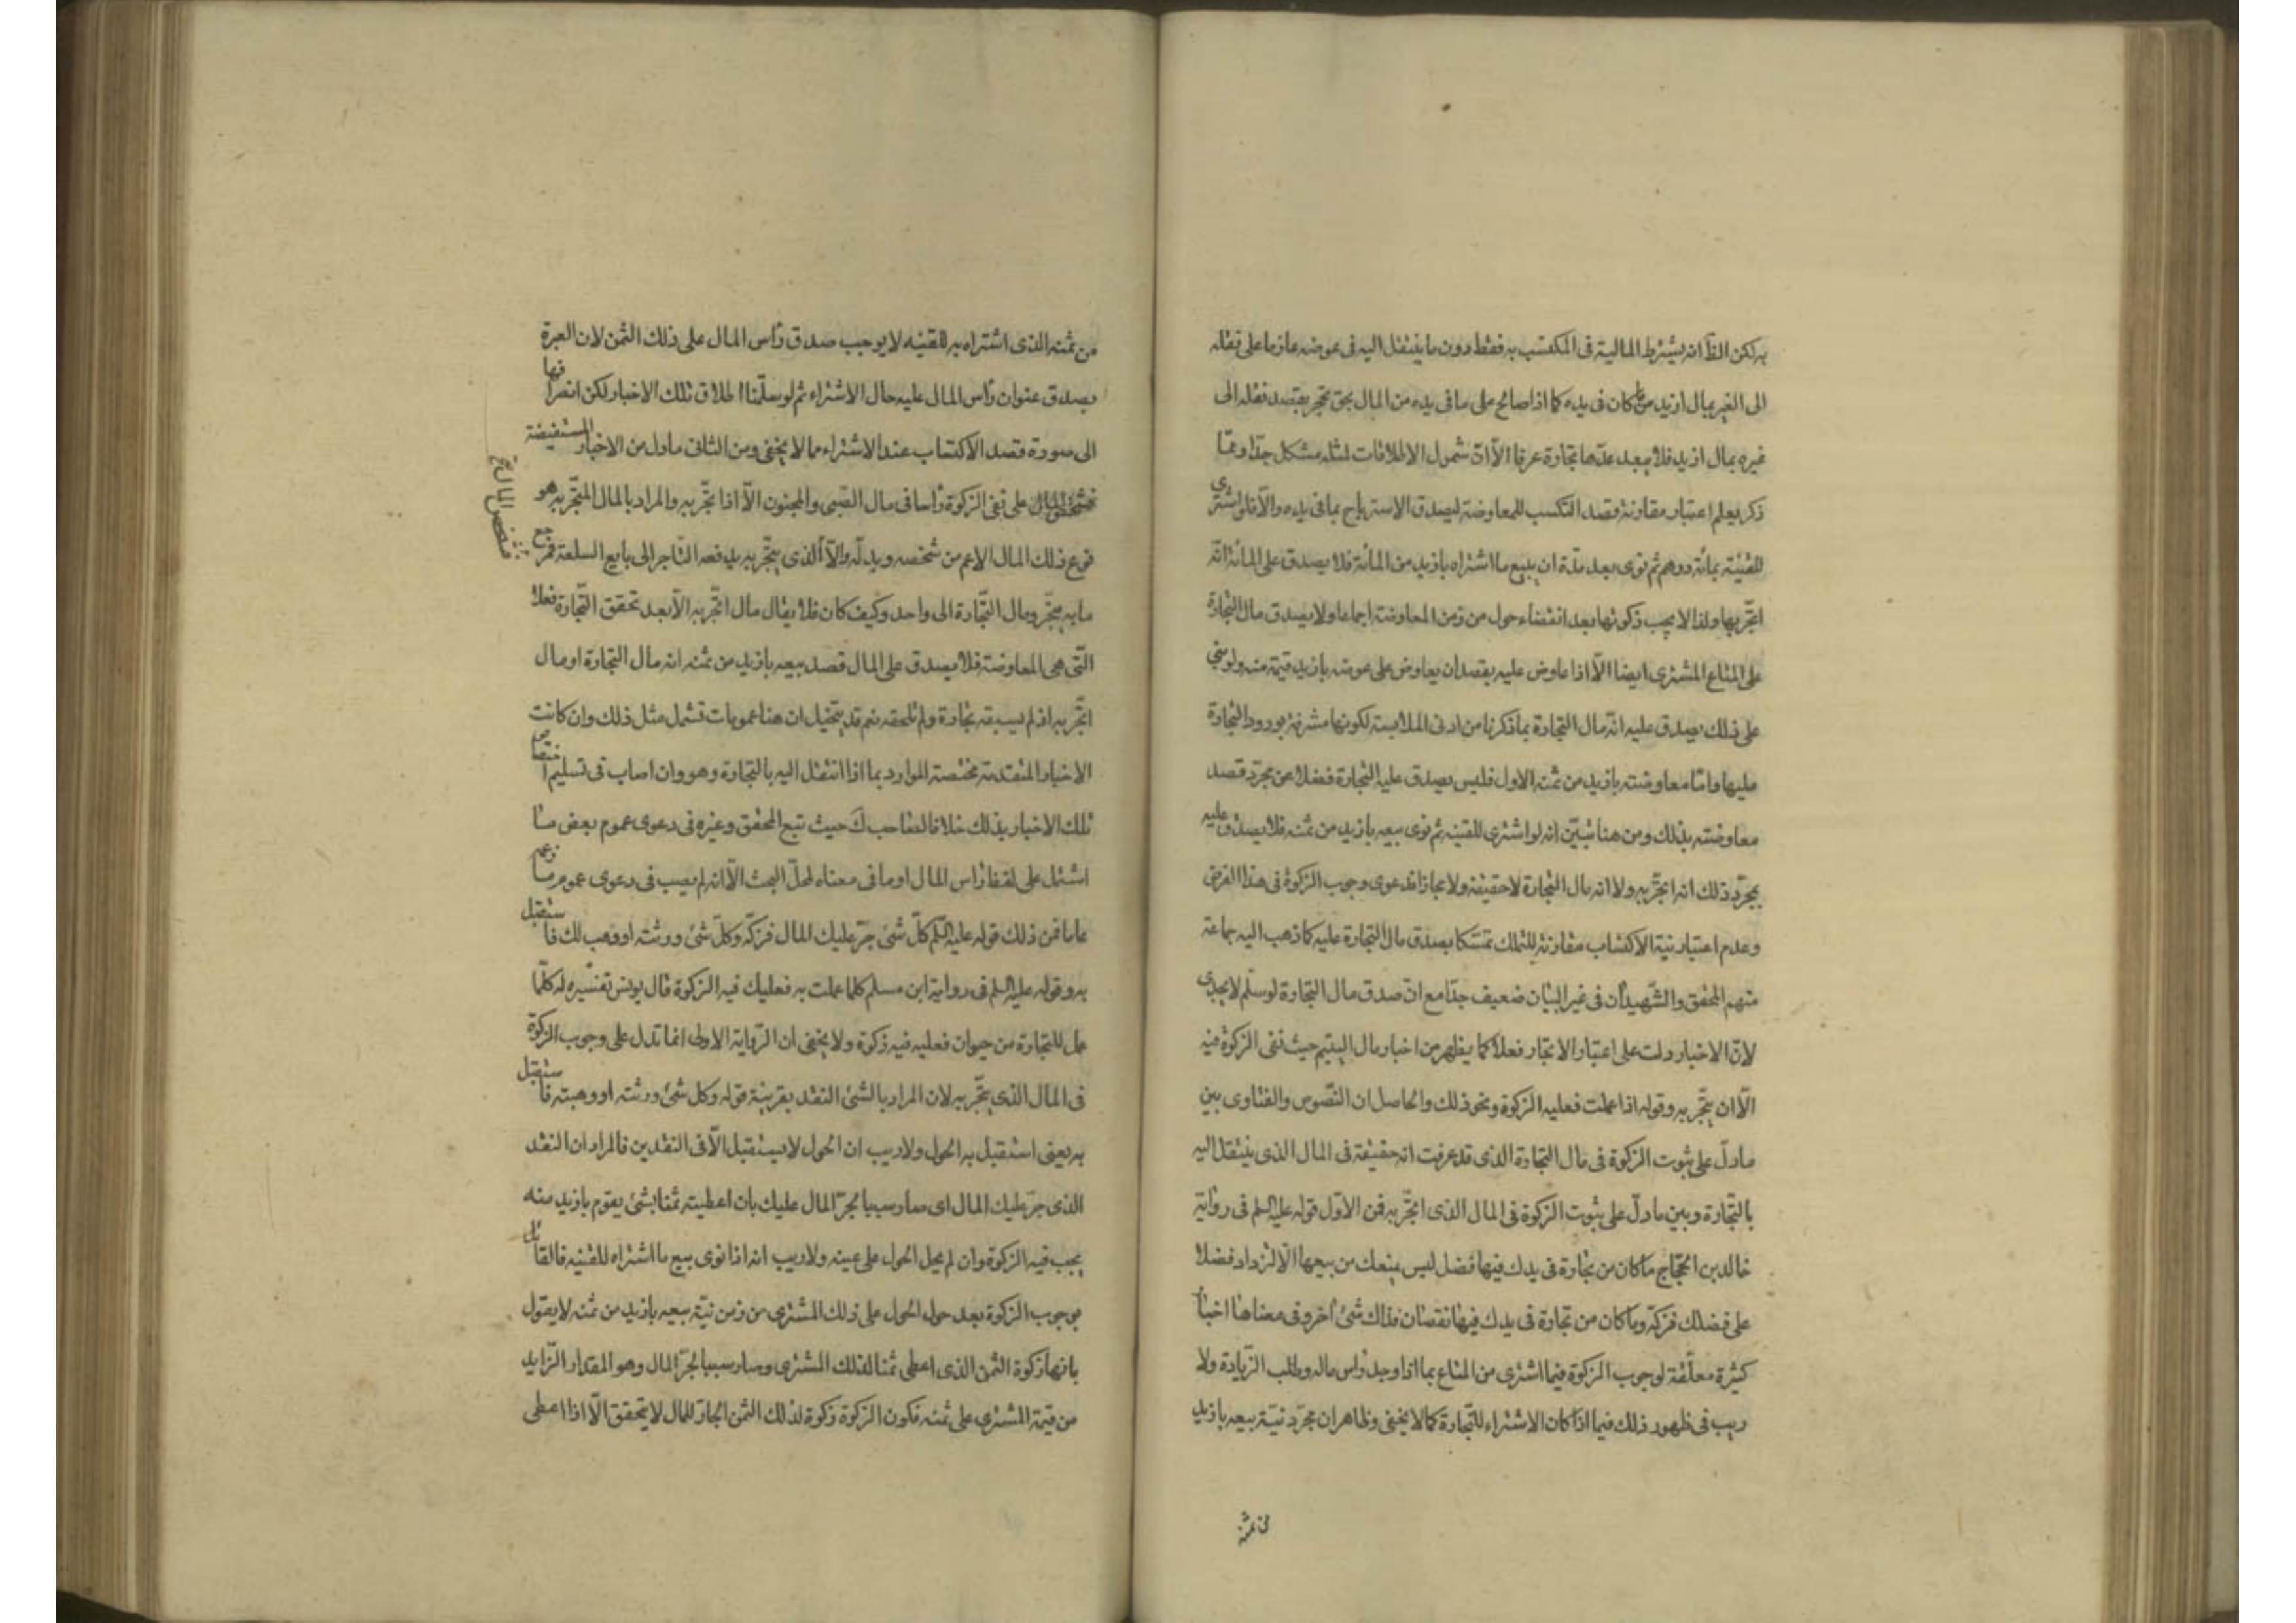 به لكن الظ انه يشترط المالية فى المكتسب به فقط دون ما ينتقل اليه فى عوضه عازما على نقله
الى الغير بمال ازيد مما كان فى يده كما اذا صالح على ما فى يده من المال بحق تحجير بقصد نقله الى
غيره بمال ازيد فلا يبعد عدّها تجارة عرفا الّا انّ شمول الاطلاقات لمثله مشكل جدّا وممّا
ذكر يعلم اعتبار مقارنة قصد التكسب للمعاوضة ليصدق الاسترباح بما فى يده والّا فلو اشترى
للقنية بمائة درهم ثم نوى بعد مدّة ان يبيع ما اشتراه بازيد من المائة فلا يصدق على المائة انّه
اتّجر بها ولذا لا يجب زكوتها بعد انقضاء حول من زمن المعاوضة اجماعا ولا يصدق مال التجارة
على المتاع المشترى ايضا الّا اذا عاوض عليه بقصد ان يعاوض على عوضه بازيد قيمة منه ولو بنى
على ذلك يصدق عليه انّه مال التجارة بما ذكرنا من ادنى الملابسة لكونها مشرفة بورود التجارة
عليها وامّا معاوضته بازيد من ثمنه الاول فليس يصدق عليه التجارة فضلا عن مجرّد قصد
معاوضته بذلك ومن هنا تبيّن انه لو اشترى للقنية ثم نوى بيعه بازيد من ثمنه فلا يصدق عليه
بمجرّد ذلك انه اتجّر به ولا انه مال التجارة لا حقيقة ولا مجازا فدعوى وجوب الزكوة فى هذا الفرض
وعدم اعتبار نية الاكتساب مقارنة للتملك تمسّكا بصدق مال التجارة عليه كما ذهب اليه جماعة
منهم المحقق والشّهيدان فى غير البيان ضعيف جدّا مع انّ صدق مال التجارة لو سلّم لا يجدى
لانّ الاخبار دلت على اعتبار الاتجار فعلا كما يظهر من اخبار مال اليتيم حيث نفى الزكوة فيه
الّا ان يتّجر به وقوله اذا عملت فعليه الزكوة ونحو ذلك والحاصل ان النّصوص والفتاوى بين
ما دلّ على ثبوت الزكوة فى مال التجارة الذى قد عرفت انه حقيقة فى المال الذى ينتقل اليه
بالتّجارة وبين ما دلّ على ثبوت الزكوة فى المال الذى اتجّر به فمن الاوّل قوله عليه السلم فى رواية
خالد بن الحجّاج ما كان من تجارة فى يدك فيها فضل ليس يمنعك من بيعها الّا لتزداد فضلا
على فضلك فزكّه وما كان من تجارة فى يدك فيها نقصان فذاك شئ اخر وفى معناها اخبار
كثيرة معلّقة لوجوب الزكوة فيما اشترى من المتاع بما اذا وجد رأس ماله وطلب الزّيادة ولا
ريب فى ظهور ذلك فيما اذا كان الاشتراء للتّجارة كما لا يخفى وظاهر ان مجرّد نيّة بيعه بازيد
من ثمنه
من ثمنه الذى اشتراه به للقنيه لا يوجب صدق رأس المال على ذلك الثمن لان العبرة
بصدق عنوان رأس المال عليه حال الاشتراء ثم لو سلّمنا اطلاق تلك الاخبار لكن انصرافها
الى صورة قصد الاكتساب عند الاشتراء مما لا يخفى ومن الثانى ما دل من الاخبار المستفيضة
على نفى الزكوة رأسا فى مال الصّبى والمجنون الّا اذا تجّر به والمراد بالمال المتّجر به هو
نوع ذلك المال الاعم من شخصه وبدله والّا الّذى يتّجر به يدفعه التّاجر الى بايع السلعة فمرجع
ما به يتجّر ومال التّجارة الى واحد وكيف كان فلا يقال مال اتّجر به الّا بعد تحقق التّجارة فعلا
التّى هى المعاوضة فلا يصدق على المال قصد بيعه بازيد من ثمنه انه مال التجارة او مال
اتجّر به اذ لم يسبقه تجارة ولم تلحقه نعم قد يتخيل ان هنا عمومات تشمل مثل ذلك وان كانت
الاخبار المتقدمة مختصة الموارد بما اذا انتقل اليه بالتجارة وهو وان اصاب فى تسليم اختصاص
تلك الاخبار بذلك خلافا لصاحب ك حيث تبع المحقق وغيره فى دعوى عموم بعض ما
اشتمل على لفظ رأس المال او ما فى معناه لمحلّ البحث الّا انه لم يصب فى دعوى عموم ما زعمه
عاما فمن ذلك قوله عليه السّلم كلّ شئ جرّ عليك المال فزكّه وكلّ شئ ورثته او وهب لك فاستقبل
به وقوله عليه السلم فى رواية ابن مسلم كلما عملت به فعليك فيه الزكوة قال يونس تفسيره له كلّما
عمل للتجارة من حيوان فعليه فيه زكوة ولا يخفى ان الرّواية الاولى انما تدل على وجوب الزكوة
فى المال الذى يتّجر به لان المراد بالشئ النقد بقرينة قوله وكل شئ ورثته او وهبته فاستقبل
به يعنى استقبل به الحول ولا ريب ان الحول لا يستقبل الّا فى النقدين فالمراد ان النقد
الذى جرّ عليك المال اى صار سببا لجرّ المال عليك بان اعطيته ثمنا بشئ يقوم بازيد منه
يجب فيه الزكوة وان لم يحل الحول على عينه ولا ريب انه اذا نوى بيع ما اشتراه للقنيه فالقائل
بوجوب الزكوة بعد حول الحول على ذلك المشترى من زمن نيّة بيعه بازيد من ثمنه لا يقول
بانها زكوة الثمن الذى اعطى ثمنا لذلك المشترى وصار سببا لجرّ المال وهو المقدار الزّايد
من قيمة المشترى على ثمنه فكون الزكوة زكوة لذلك الثمن الجارّ للمال لا يتحقق الّا اذا اعطى